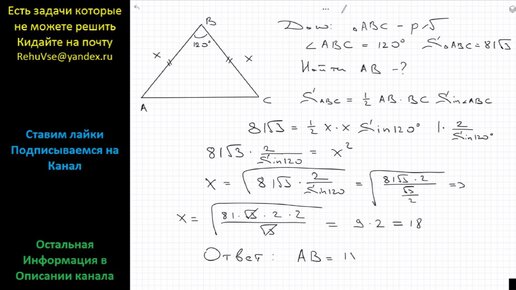 Есть задачи которые
не можете решить
Кидайте на почту
RehuVse@yandex.ru
Ставим лайки
Подписываемся на
Канал
Остальная
Информация в
Описании канала
B
120°
x x
A C
Дано: △ABC - р/б
∠ABC = 120° S△ABC = 81√3
Найти AB - ?
S ABC = 1/2 AB · BC Sin∠ABC
81√3 = 1/2 x · x Sin120° | · 2/Sin120°
81√3 · 2/Sin120 = x²
x = √(81√3 · 2/Sin120) = √(81√3 · 2/(√3/2)) =>
x = √(81 · √3 · 2 · 2/√3) = 9 · 2 = 18
Ответ: AB = 1